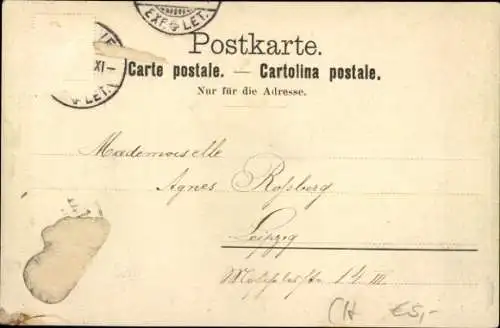 EXP. LET.
XI-
LET.
Postkarte.
Carte postale. — Cartolina postale.
Nur für die Adresse.
Mademoiselle
Agnes Roßberg
Leipzig
14 III
CH €5,-